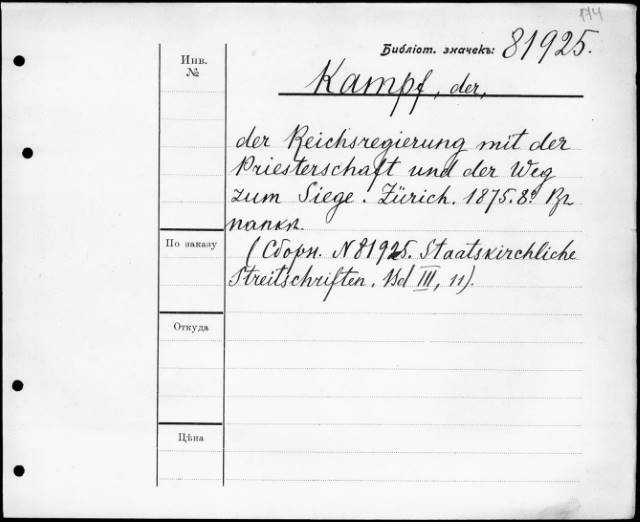 174
Библіот. значекъ: 81925.
Инв.
№
Kampf, der,
der Reichsregierung mit der
Priesterschaft und der Weg
zum Siege. Zürich. 1875. 8º. Въ
папкѣ.
По заказу
(Сборн. N 81925. Staatskirchliche
Streitschriften. Bd III, 11).
Откуда
Цѣна